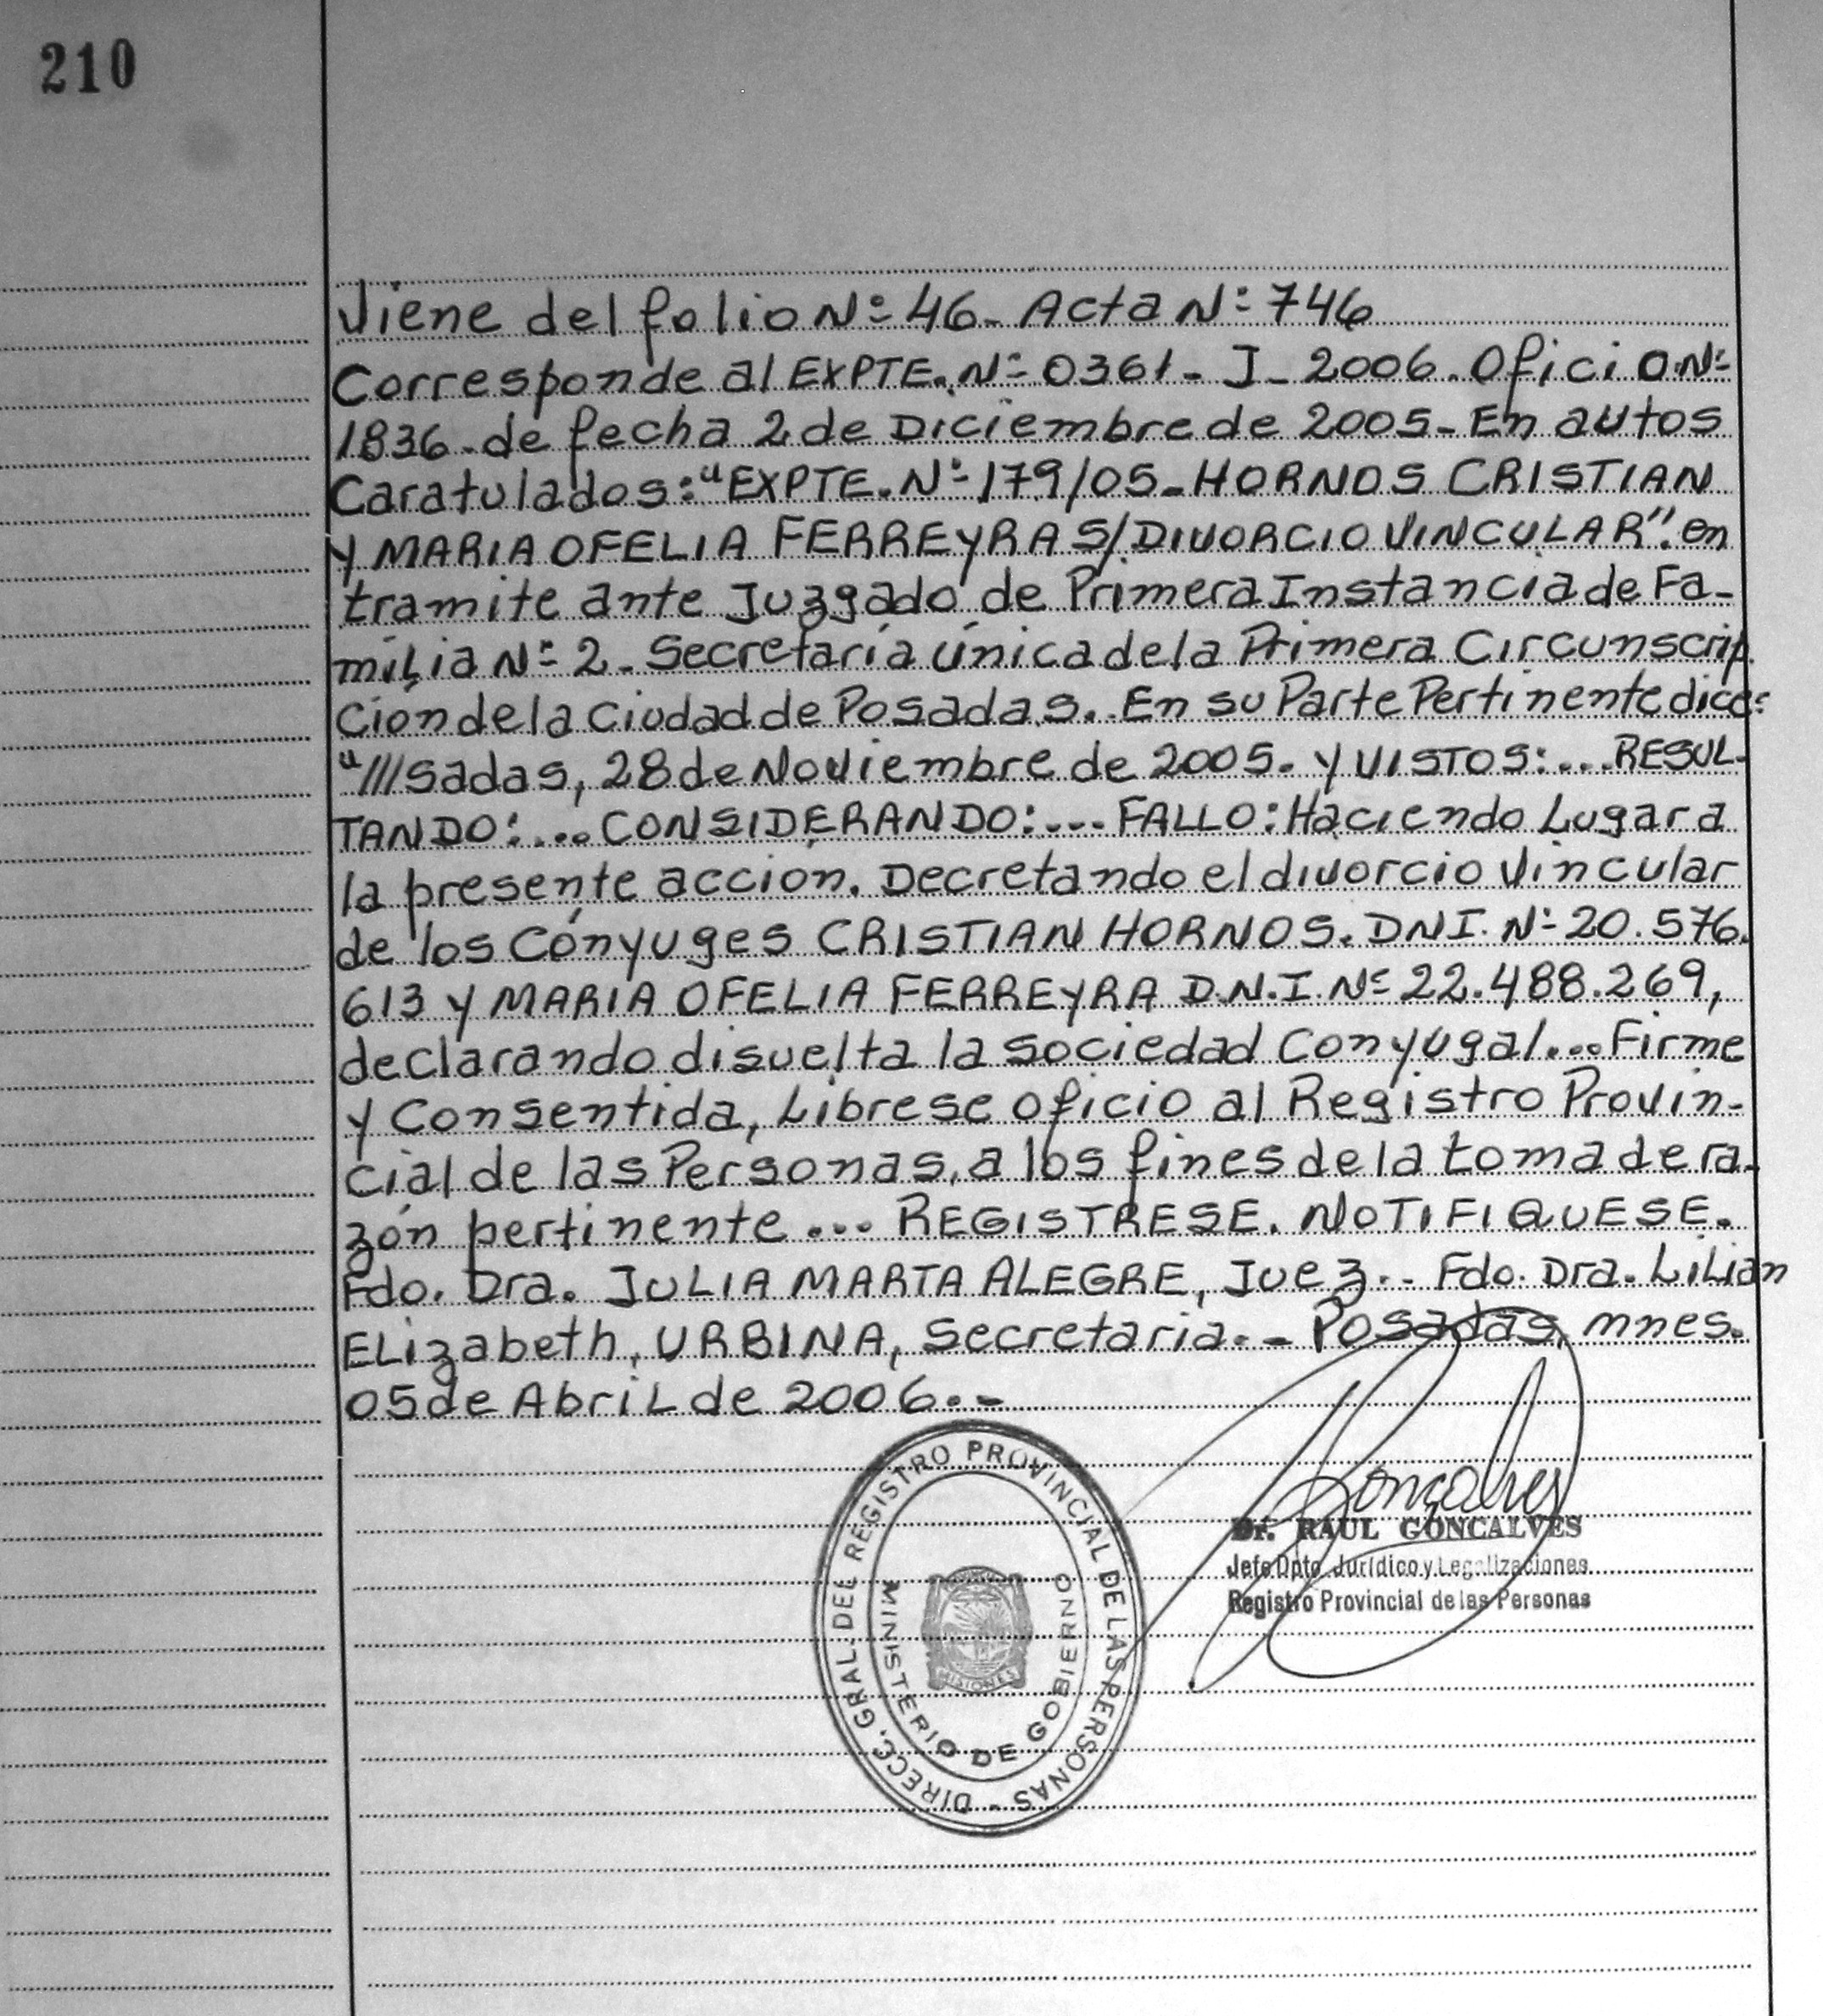 210
Viene del folio Nº 46- Acta Nº 746
Corresponde al EXPTE. Nº 0361- J- 2006. Oficio Nº
1836- de fecha 2 de Diciembre de 2005- En autos
Caratulados: "EXPTE. Nº 179/05- HORNOS CRISTIAN
Y MARIA OFELIA FERREYRA S/DIVORCIO VINCULAR". en
tramite ante Juzgado de Primera Instancia de Fa-
milia Nº 2- Secretaría única de la Primera Circunscrip
cion de la Ciudad de Posadas. En su Parte Pertinente dice:
"///sadas, 28 de Noviembre de 2005. Y VISTOS:... RESUL-
TANDO:... CONSIDERANDO:... FALLO: Haciendo Lugar a
la presente accion. Decretando el divorcio Vincular
de los Cónyuges CRISTIAN HORNOS. DNI. Nº 20.576.
613 Y MARIA OFELIA FERREYRA D.N.I. Nº 22.488.269,
declarando disuelta la Sociedad Conyugal... Firme
y Consentida, Librese oficio al Registro Provin-
cial de las Personas, a los fines de la toma de ra-
zón pertinente ... REGISTRESE. NOTIFIQUESE.
Fdo. Dra. JULIA MARTA ALEGRE, Juez.- Fdo. Dra. Lilian
Elizabeth, URBINA, Secretaria.- Posadas, mnes.
05 de Abril de 2006.-
DIRECC. GRAL. DEL REGISTRO PROVINCIAL DE LAS PERSONAS -
MINISTERIO DE GOBIERNO
MISIONES
Gonçalves
Dr. RAUL GONCALVES
Jefe Dpto. Jurídico y Legalizaciones
Registro Provincial de las Personas